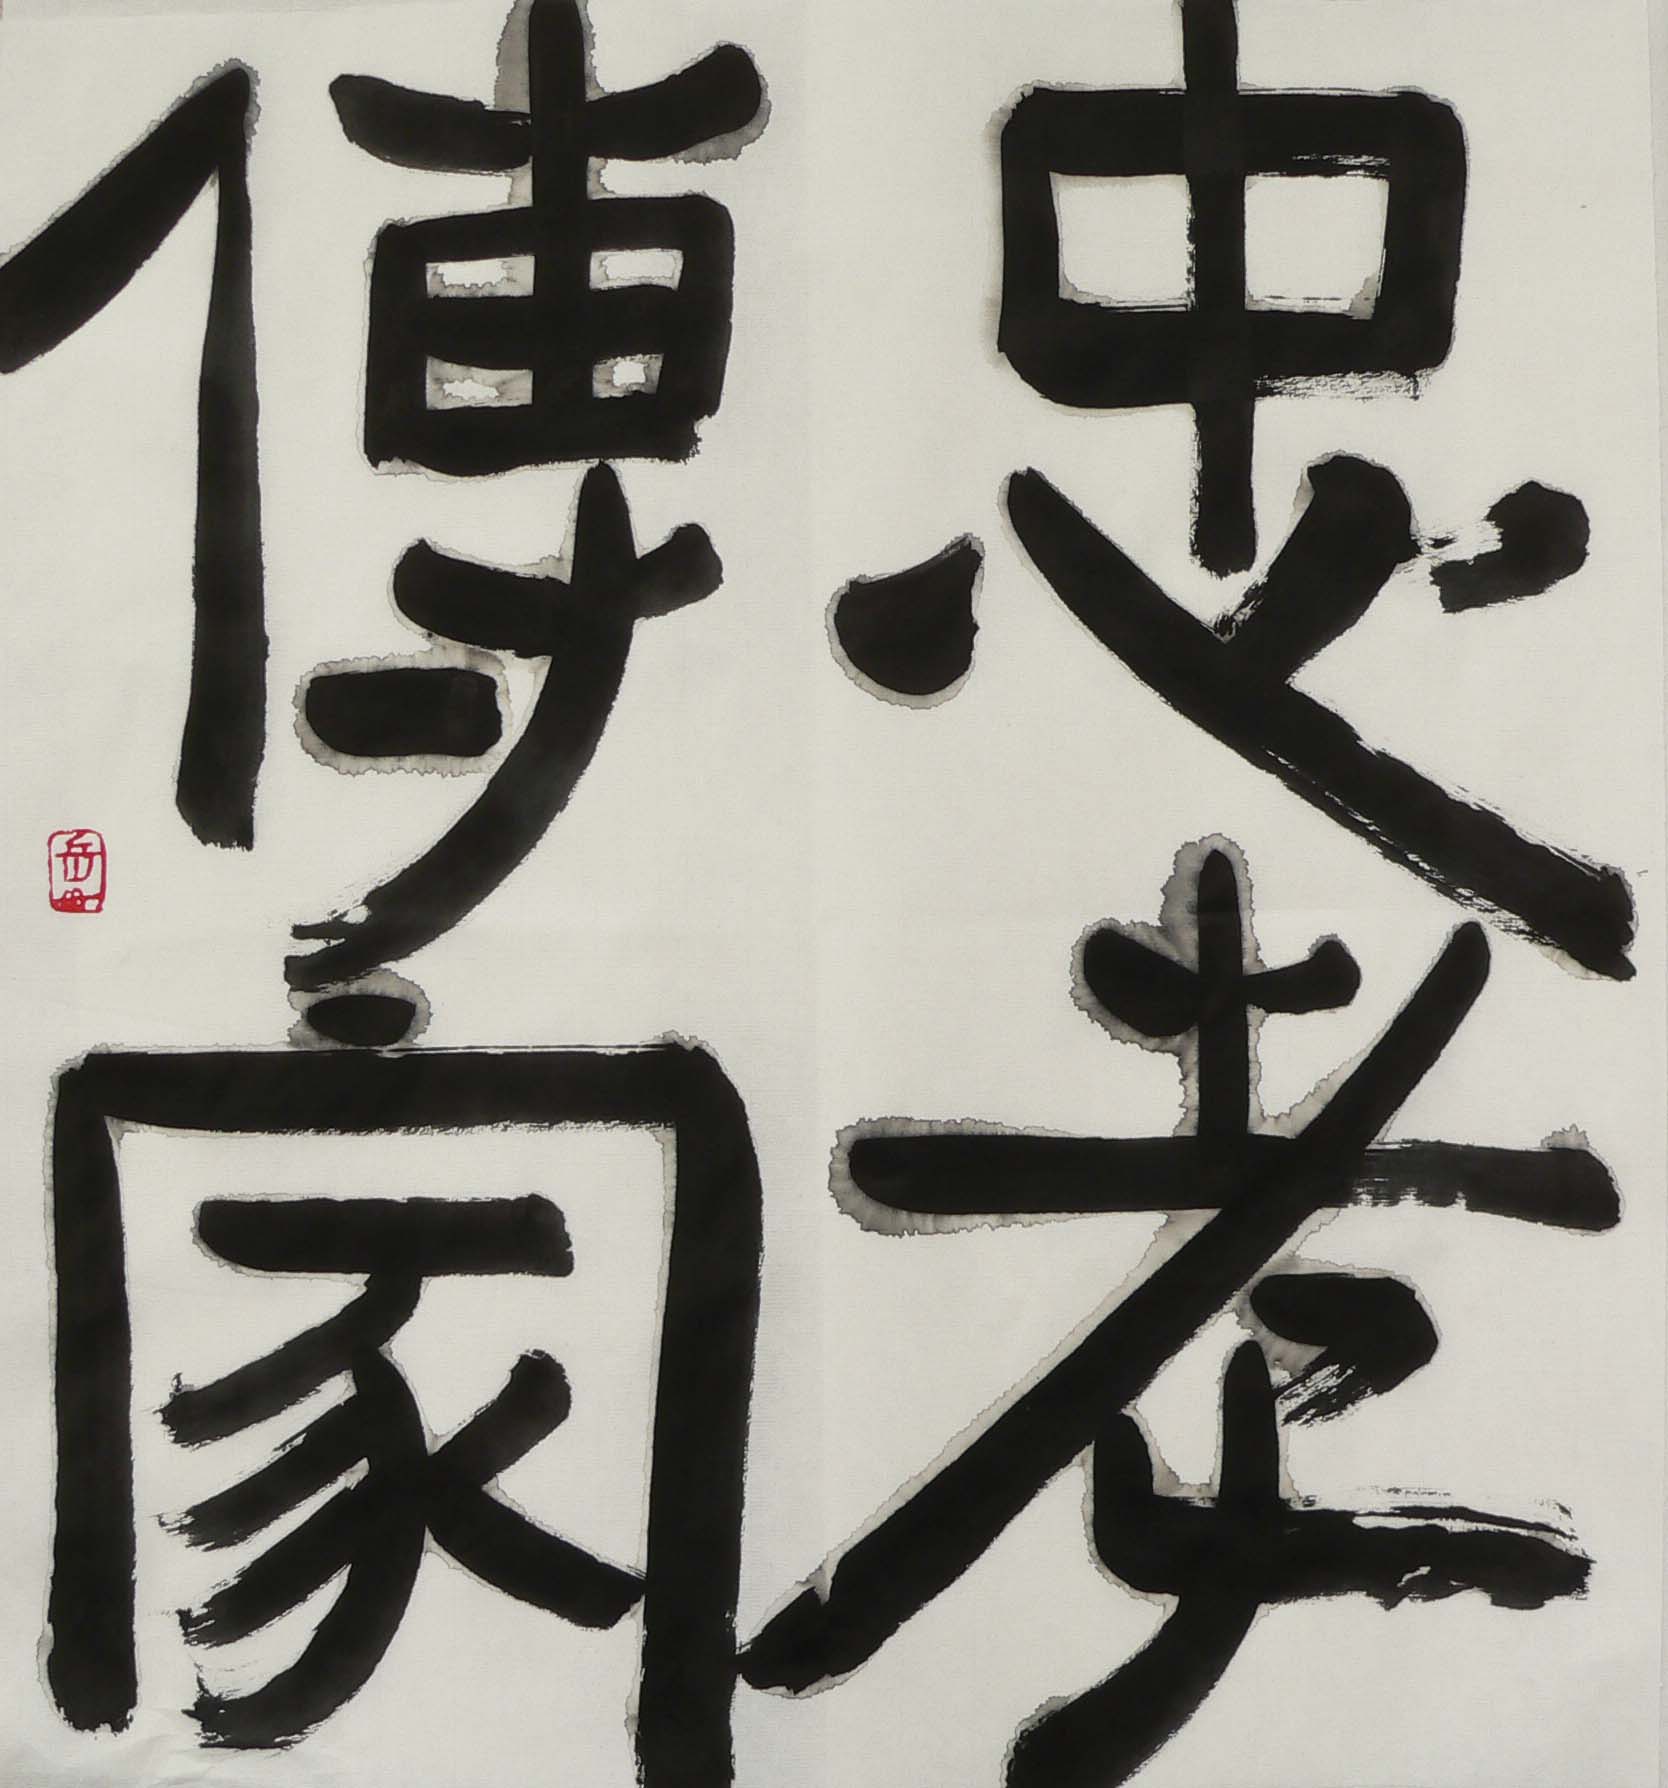 忠孝
傳家